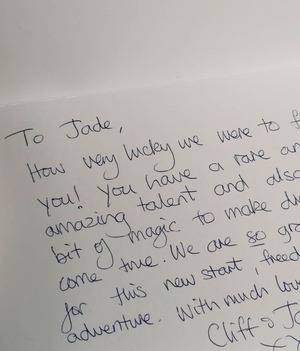 To Jade,
How very lucky we were to
you! You have a rare
amazing talent and also
bit of magic to make
come true. We are so
for this new start,
adventure. With much
Cliff &